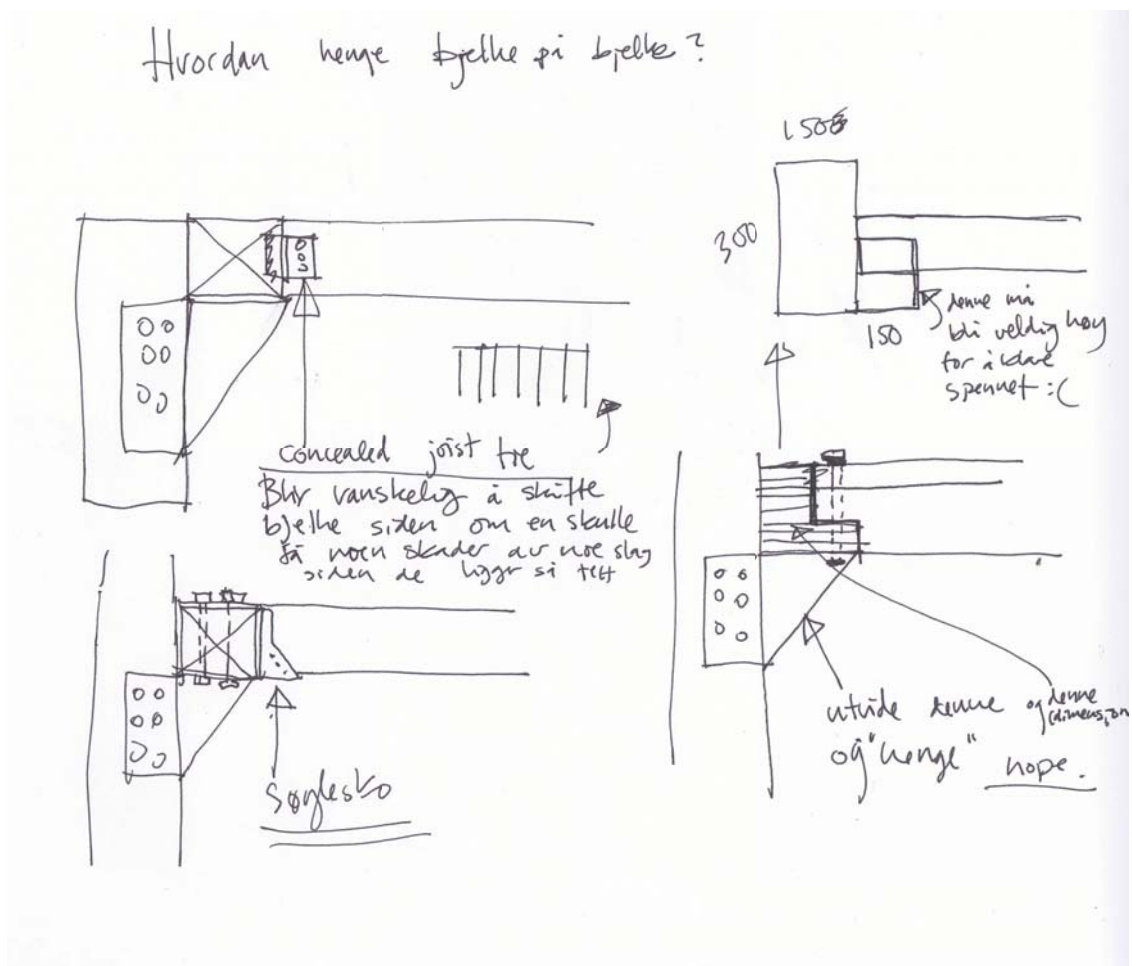 Hvordan henge bjelke på bjelke?
150
300
150
denne må
bli veldig høy
for å klare
spennet :(
concealed joist tre
Blir vanskelig å skifte
bjelke siden om en skulle
få noen skader av noe slag
siden de ligger så tett
Søylesko
utvide denne og denne
(dimensjon
og "henge" nope.